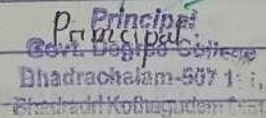 Principal
Principal
Govt. Degree College
Bhadrachalam-507 1
Bhadradri Kothagudem Dist